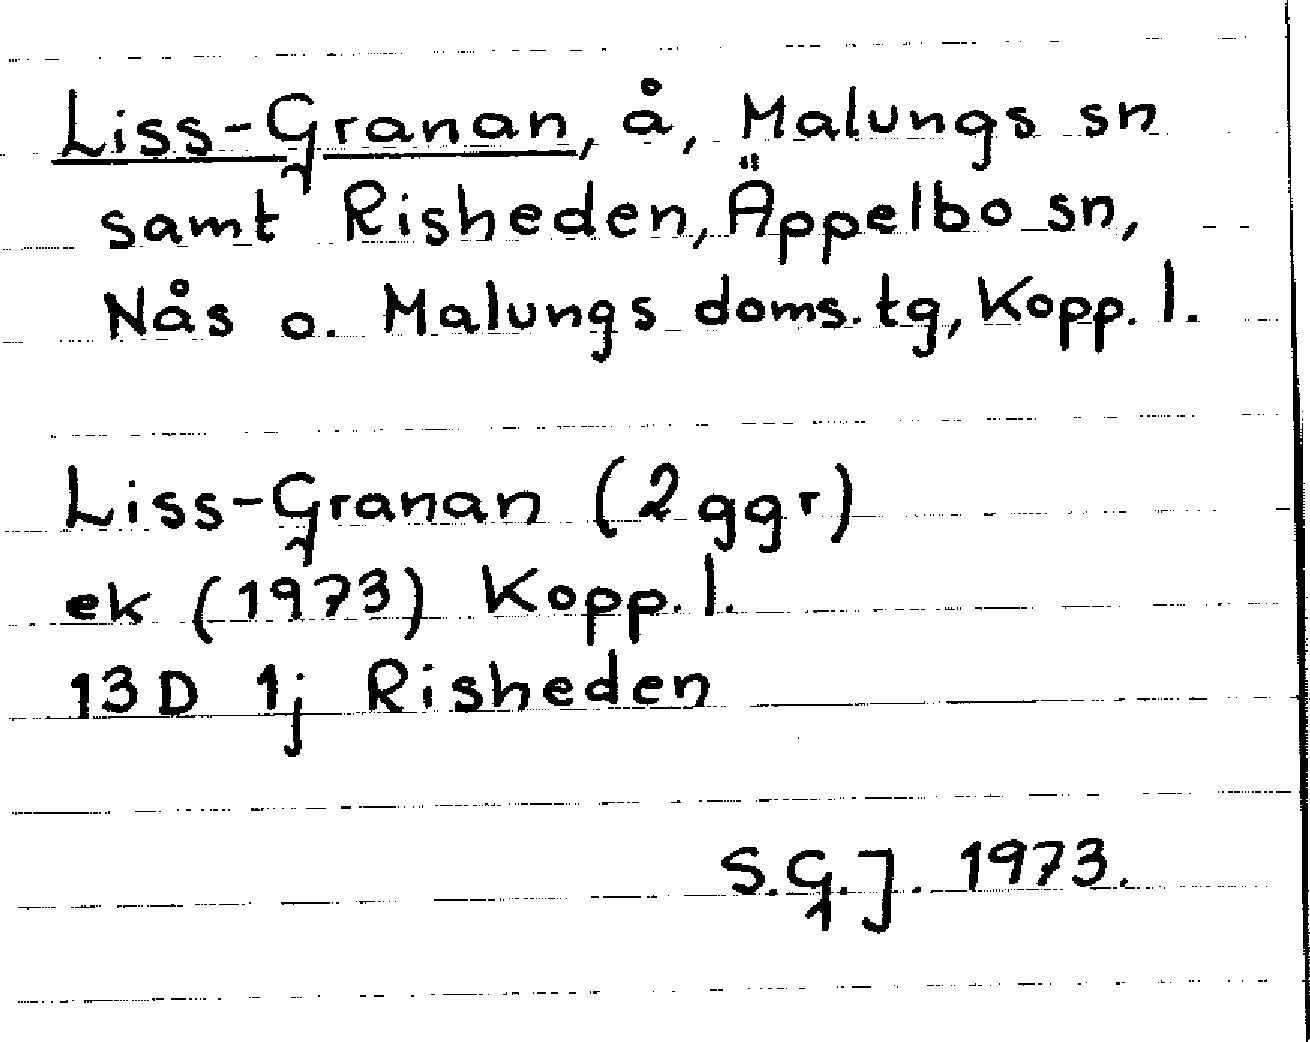 Liss-Granan, å, Malungs sn
samt Risheden, Äppelbo sn,
Nås o. Malungs doms.tg, Kopp. l.
Liss-Granan (2 ggr)
ek (1973) Kopp. l.
13D 1j Risheden
S.G.J. 1973.